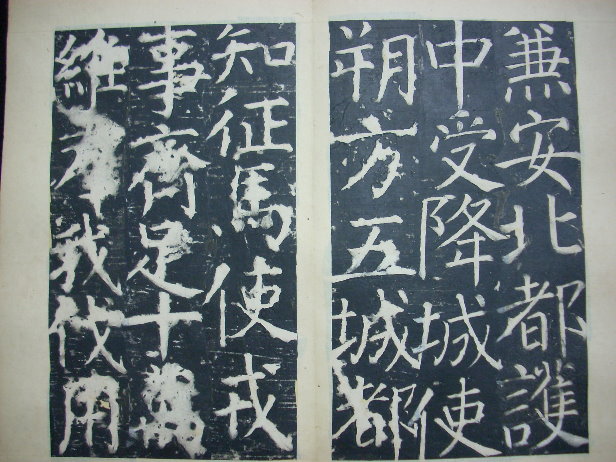 兼安北都護
中受降城使
朔方五城都
知征馬使戎
事齊足十萬
維羣我伐用